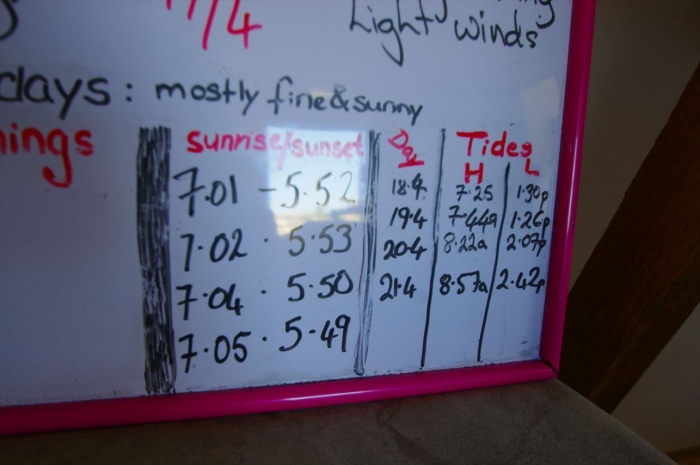 17/4
Light winds
days: mostly fine & sunny
sunrise/sunset Day Tides
H L
7.01 - 5.52 18.4 7.25 1.30p
7.02 . 5.53 19.4 7.44a 1.26p
7.04 . 5.50 20.4 8.22a 2.07p
7.05 . 5.49 21.4 8.57a 2.42p